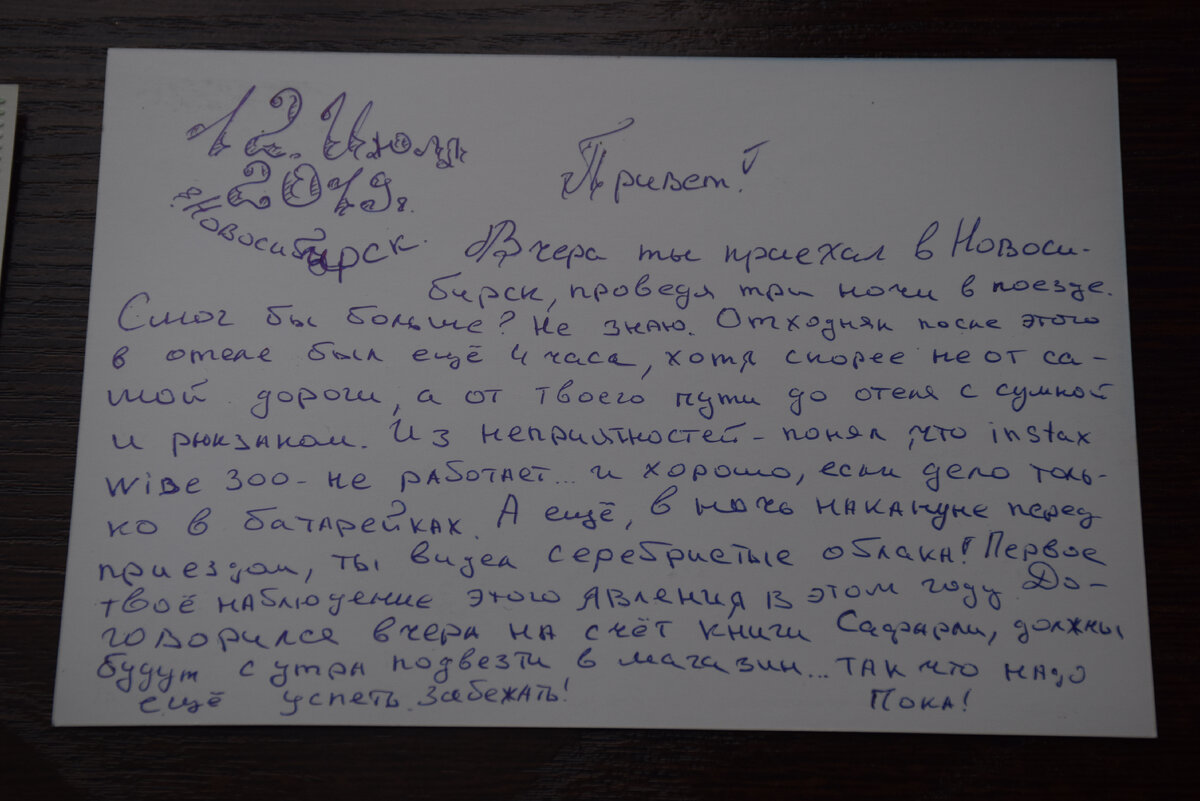 12. Июля
2019г.
г. Новосибирск.
Привет!
Вчера ты приехал в Новоси-
бирск, проведя три ночи в поезде.
Смог бы больше? Не знаю. Отходняк после этого
в отеле был ещё 4 часа, хотя скорее не от са-
мой дороги, а от твоего пути до отеля с сумкой
и рюкзаком. Из неприятностей - понял, что instax
wide 300 - не работает... и хорошо, если дело толь-
ко в батарейках. А ещё, в ночь накануне перед
приездом, ты видел серебристые облака! Первое
твоё наблюдение этого явления в этом году. До-
говорился вчера на счёт книги Сафарли, должны
будут с утра подвезти в магазин... так что надо
ещё успеть забежать!
Пока!